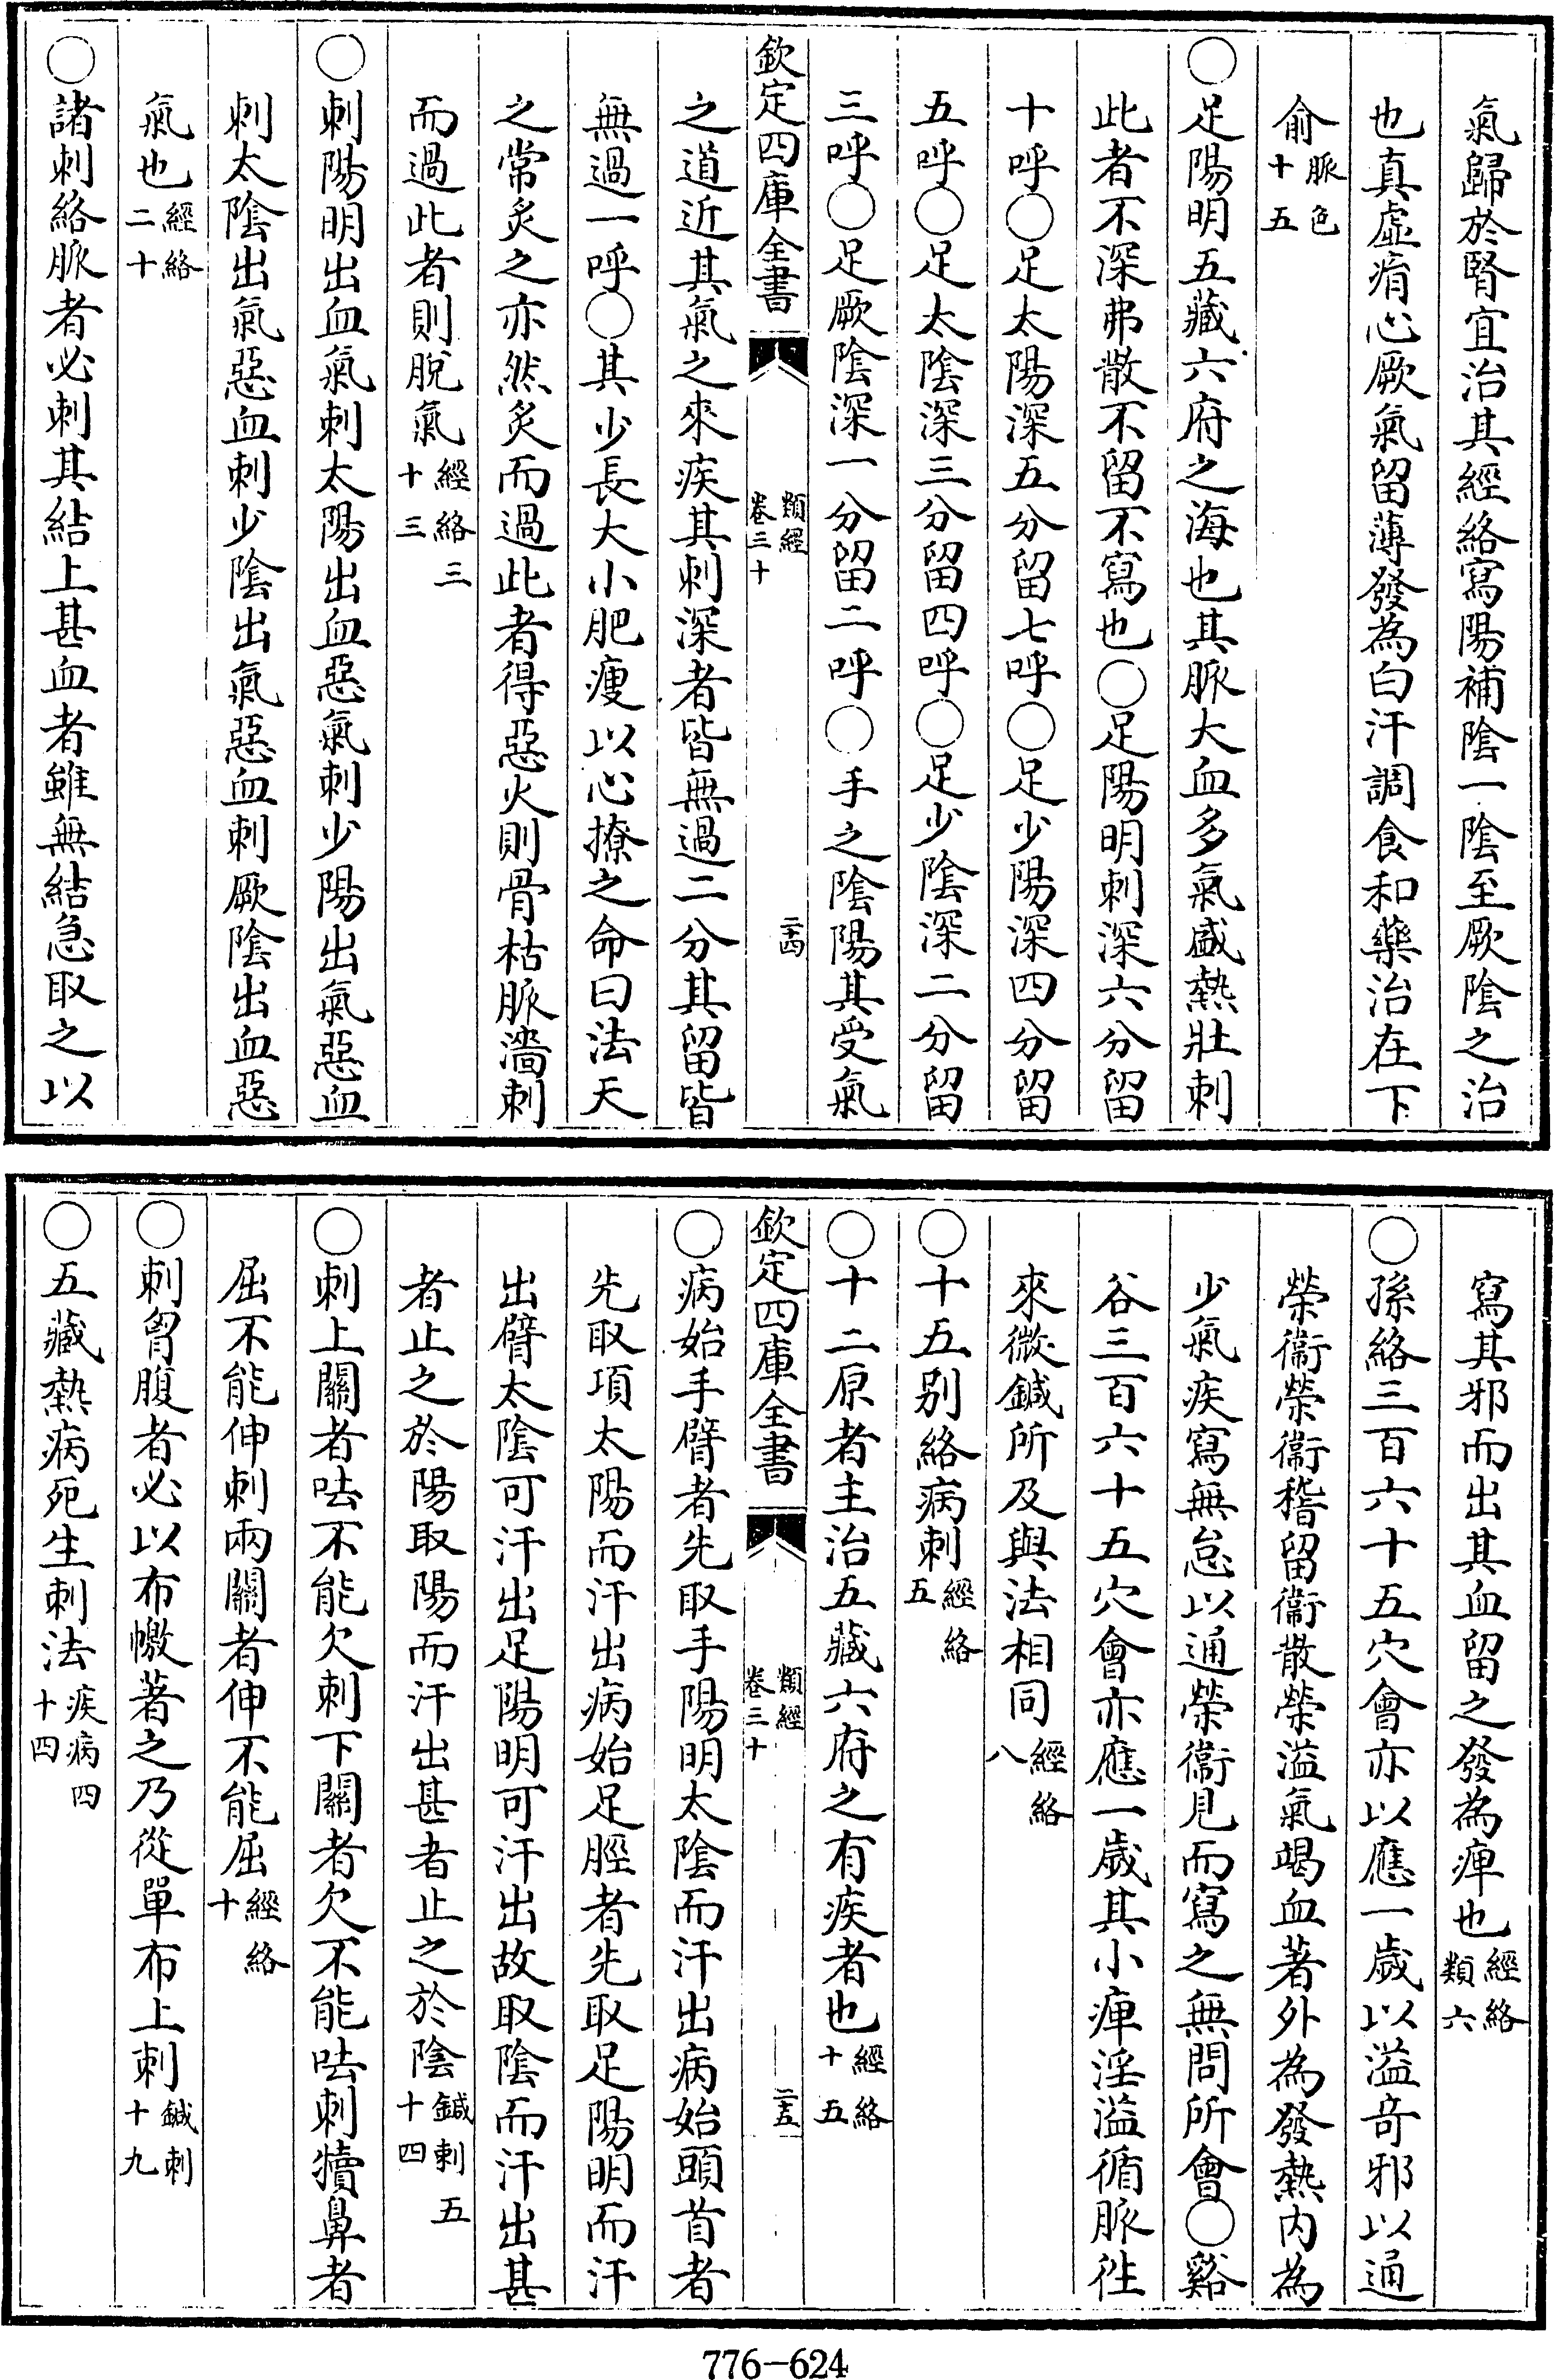 氣歸於腎宜治其經絡寫陽補陰一陰至厥陰之治
也真虛痟心厥氣留薄發為白汗調食和藥治在下
俞脈色十五
○足陽明五藏六府之海也其脈大血多氣盛熱壯刺
此者不深弗散不留不寫也○足陽明刺深六分留
十呼○足太陽深五分留七呼○足少陽深四分留
五呼○足太陰深三分留四呼○足少陰深二分留
三呼○足厥陰深一分留二呼○手之陰陽其受氣
欽定四庫全書 類經卷三十 二十四
之道近其氣之來疾其刺深者皆無過二分其留皆
無過一呼○其少長大小肥瘦以心撩之命曰法天
之常炙之亦然炙而過此者得惡火則骨枯脈濇刺
而過此者則脫氣經絡三十三
○刺陽明出血氣刺太陽出血惡氣刺少陽出氣惡血
刺太陰出氣惡血刺少陰出氣惡血刺厥陰出血惡
氣也經絡二十
○諸刺絡脈者必刺其結上甚血者雖無結急取之以
寫其邪而出其血留之發為痺也經絡類六
○孫絡三百六十五穴會亦以應一歲以溢奇邪以通
榮衞榮衞稽留衞散榮溢氣竭血著外為發熱內為
少氣疾寫無怠以通榮衞見而寫之無問所會○谿
谷三百六十五穴會亦應一歲其小痺淫溢循脈徃
來微鍼所及與法相同經絡八
○十五別絡病刺經絡五
○十二原者主治五藏六府之有疾者也經絡十五
欽定四庫全書 類經卷三十 二十五
○病始手臂者先取手陽明太陰而汗出病始頭首者
先取項太陽而汗出病始足脛者先取足陽明而汗
出臂太陰可汗出足陽明可汗出故取陰而汗出甚
者止之於陽取陽而汗出甚者止之於陰鍼刺五十四
○刺上關者呿不能欠刺下關者欠不能呿刺犢鼻者
屈不能伸刺兩關者伸不能屈經絡十
○刺胷腹者必以布憿著之乃從單布上刺鍼刺十九
○五藏熱病死生刺法疾病四十四
776-624